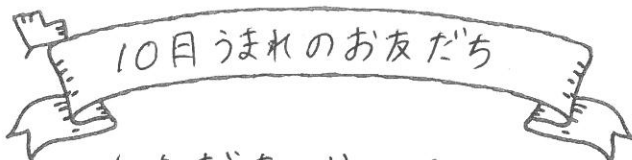 10月うまれのお友だち